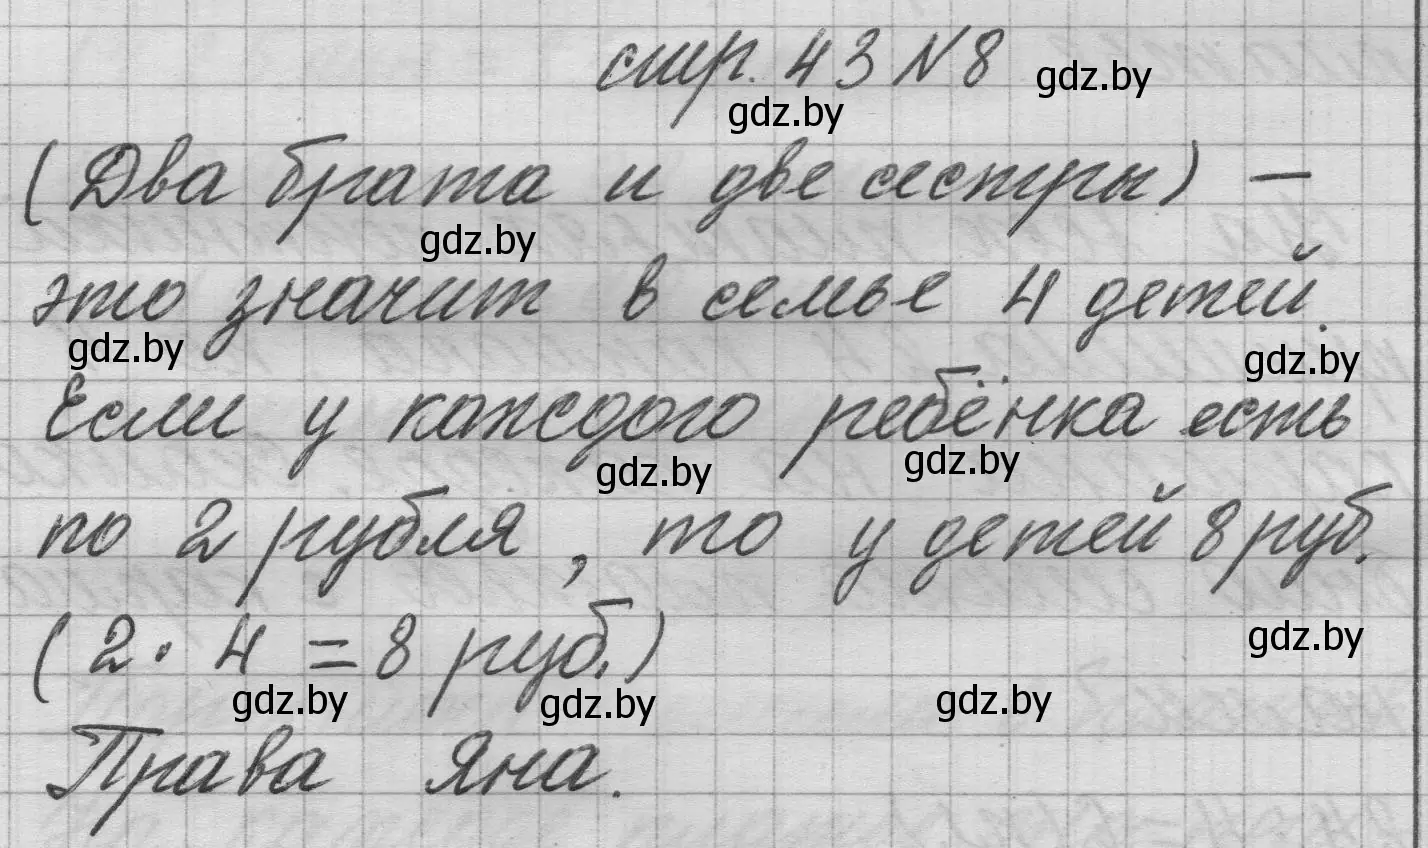 стр. 43 N 8
gdz.by
gdz.by
(Два брата и две сестры) —
gdz.by
это значит в семье 4 детей.
gdz.by
gdz.by
Если у каждого ребёнка есть
gdz.by
gdz.by
по 2 рубля, то у детей 8 руб.
(2 · 4 = 8 руб.)
gdz.by
gdz.by
gdz.by
gdz.by
Права Яна.